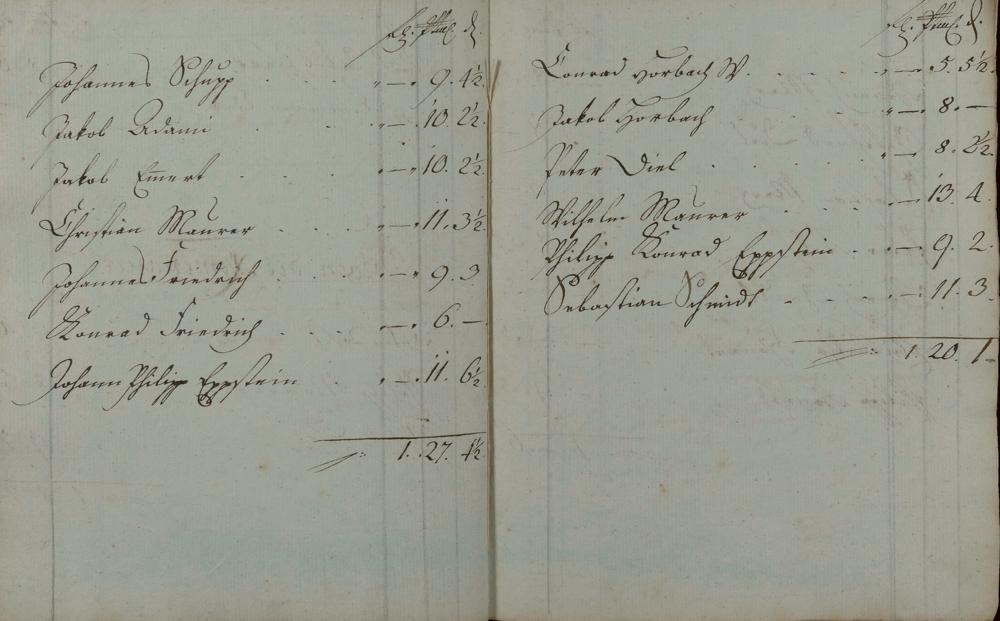 Johannes Schupp . . . " — " 9. 4½.
Jakob Adami . . . " — " 10. 2½.
Jakob Emert . . . " — " 10. 2½.
Christian Maurer . . . " — " 11. 3½
Johannes Friedrich . . . " — " 9. 3
Konrad Friedrich . . . " — " 6. —
Johann Philipp Eppstein . . " — " 11. 6½.
1. 27. 4½
Conrad Horbach W. . . . " — " 5. 5½.
Jakob Horbach " — " 8. —
Peter Diel . . . . " — " 8. 2½.
Wilhelm Maurer . . . " — " 13. 4.
Philipp Konrad Eppstein . . " — " 9. 2.
Sebastian Schmidt . . . " — " 11. 3.
1. 20. 1